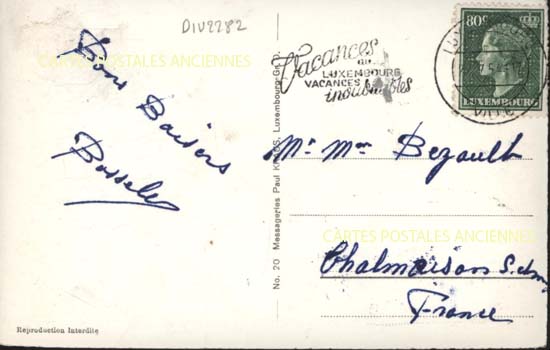 DIV2282
Bons Baisers
Vacances
au
LUXEMBOURG
VACANCES
inoubliables
80c
LUXEMBOURG
Mr Mme Bezault
Chalmaison S. et M.
France
No. 20 Messageries Paul Kraus, Luxembourg-Gare.
CARTES POSTALES ANCIENNES
CARTES POSTALES ANCIENNES
Reproduction Interdite